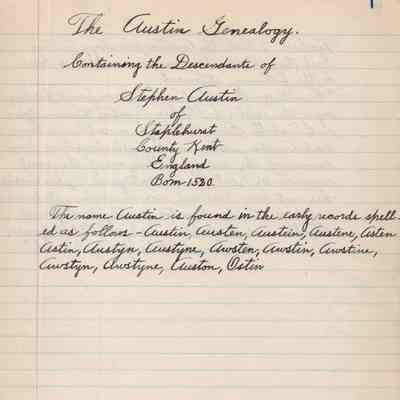 The Austin Genealogy.
Containing the Descendants of
Stephen Austin
of
Staplehurst
County Kent
England
Born 1520.
The name Austin is found in the early records spell-
ed as follows - Austin, Austen, Austein, Austene, Asten
Astin, Austyn, Austyne, Awsten, Awstin, Awstine,
Awstyn, Awstyne, Auston, Ostin